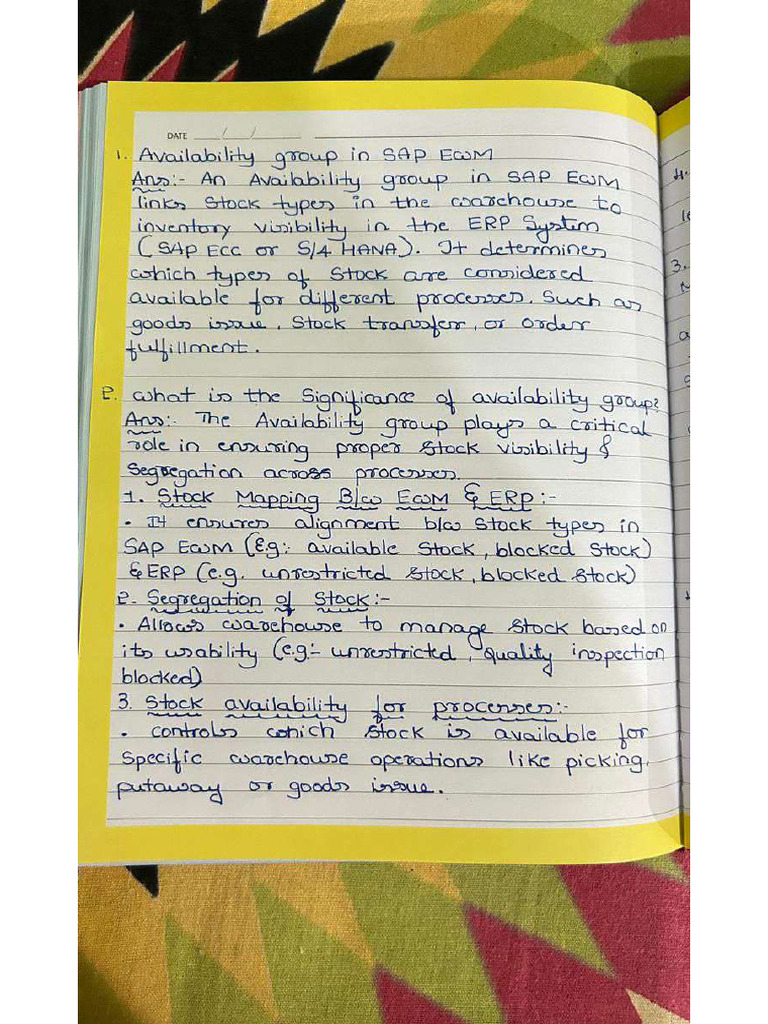 DATE / /
1. Availability group in SAP EWM
Ans:- An Availability group in SAP EWM
links Stock types in the warehouse to
inventory visibility in the ERP System
(SAP ECC or S/4 HANA). It determines
which types of Stock are considered
available for different processes, Such as
goods issue, Stock transfer, or order
fulfillment.
2. What is the Significance of availability group?
Ans:- The Availability group plays a critical
role in ensuring proper Stock visibility &
Segregation across processes.
1. Stock Mapping B/w EWM & ERP:-
• It ensures alignment b/w Stock types in
SAP EWM (E.g:- available Stock, blocked Stock)
& ERP (e.g. unrestricted Stock, blocked Stock)
2. Segregation of Stock:-
• Allows warehouse to manage Stock based on
its usability (e.g:- unrestricted, quality inspection
blocked)
3. Stock availability for processes:-
• controls which Stock is available for
Specific warehouse operations like picking,
putaway or goods issue.
4.
3.